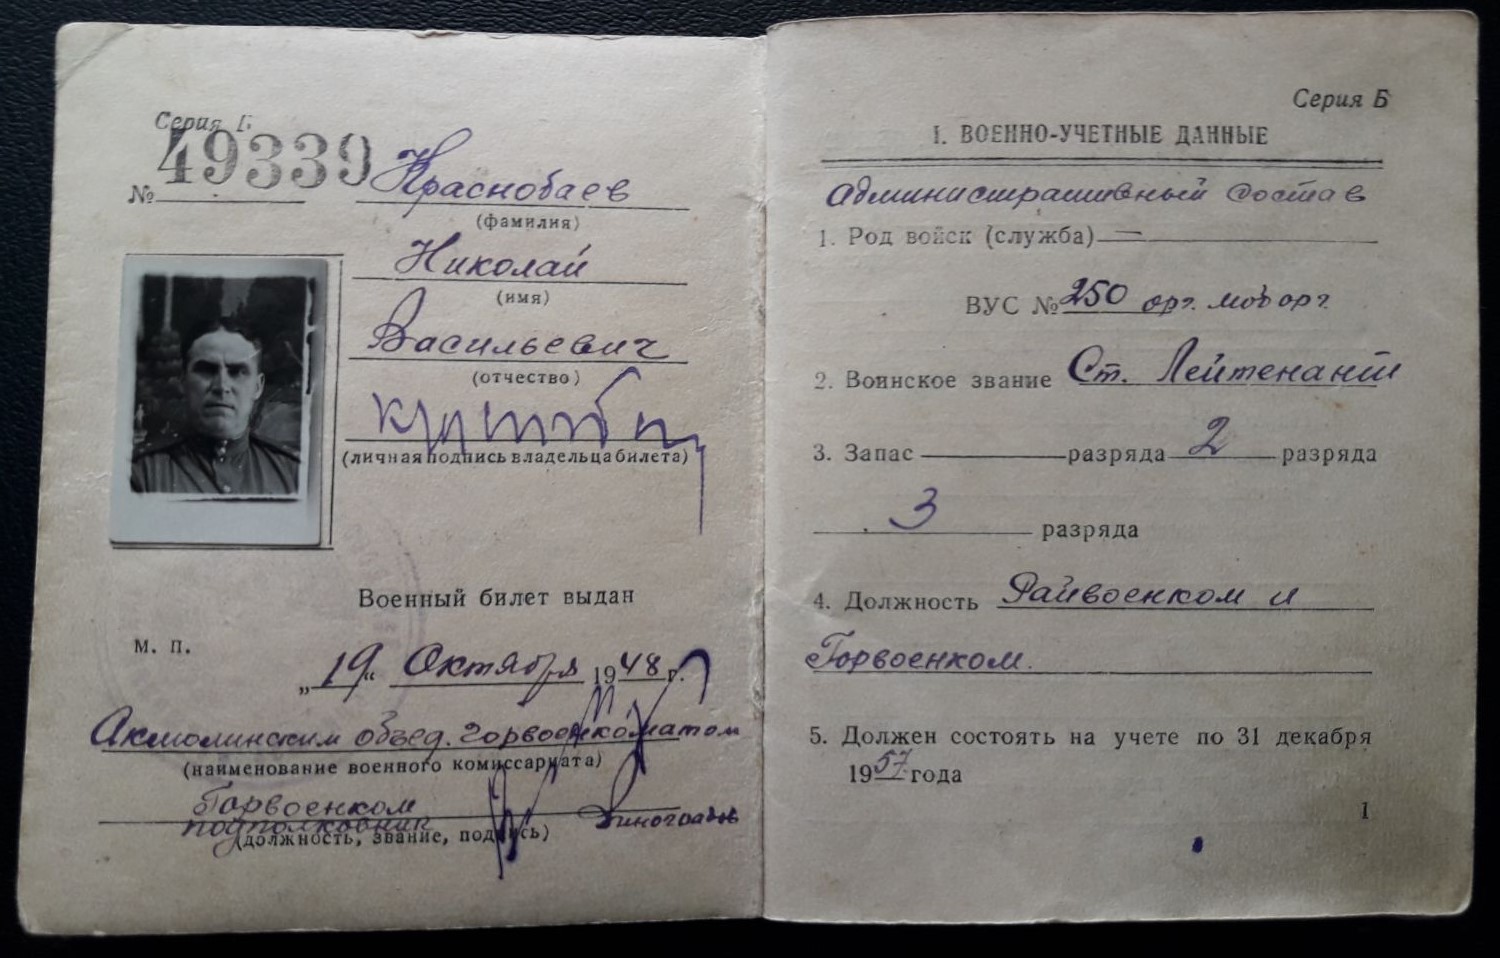 Серия Б
№ 49339
Краснобаев
(фамилия)
Николай
(имя)
Васильевич
(отчество)
(личная подпись владельца билета)
Военный билет выдан
М. П.
„19“ Октября 1948 г.
Акмолинским объед. горвоенкоматом
(наименование военного комиссариата)
Горвоенком
подполковник Виноградов
(должность, звание, подпись)
Серия Б
I. ВОЕННО-УЧЕТНЫЕ ДАННЫЕ
Административный состав
1. Род войск (служба)
ВУС № 250 орг. моб орг.
2. Воинское звание Ст. Лейтенант
3. Запас разряда 2 разряда
3 разряда
4. Должность Райвоенком и
Горвоенком.
5. Должен состоять на учете по 31 декабря
1957 года
1